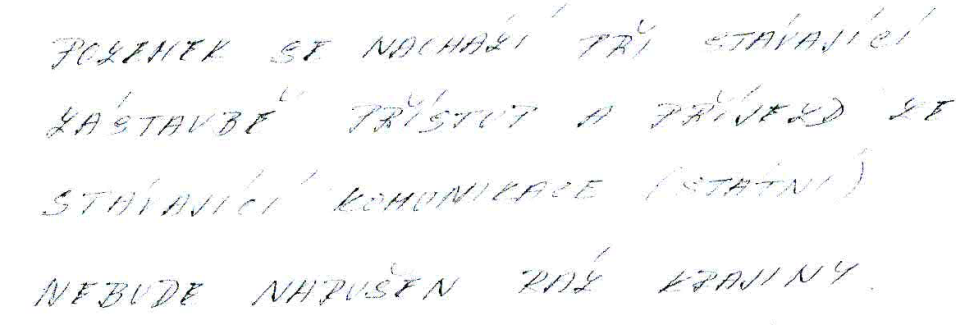 POZEMEK SE NACHÁZÍ PŘI STÁVAJÍCÍ
ZÁSTAVBĚ PŘÍSTUP A PŘÍJEZD ZE
STÁVAJÍCÍ KOMUNIKACE (STÁTNÍ)
NEBUDE NARUŠEN RÁZ KRAJINY.